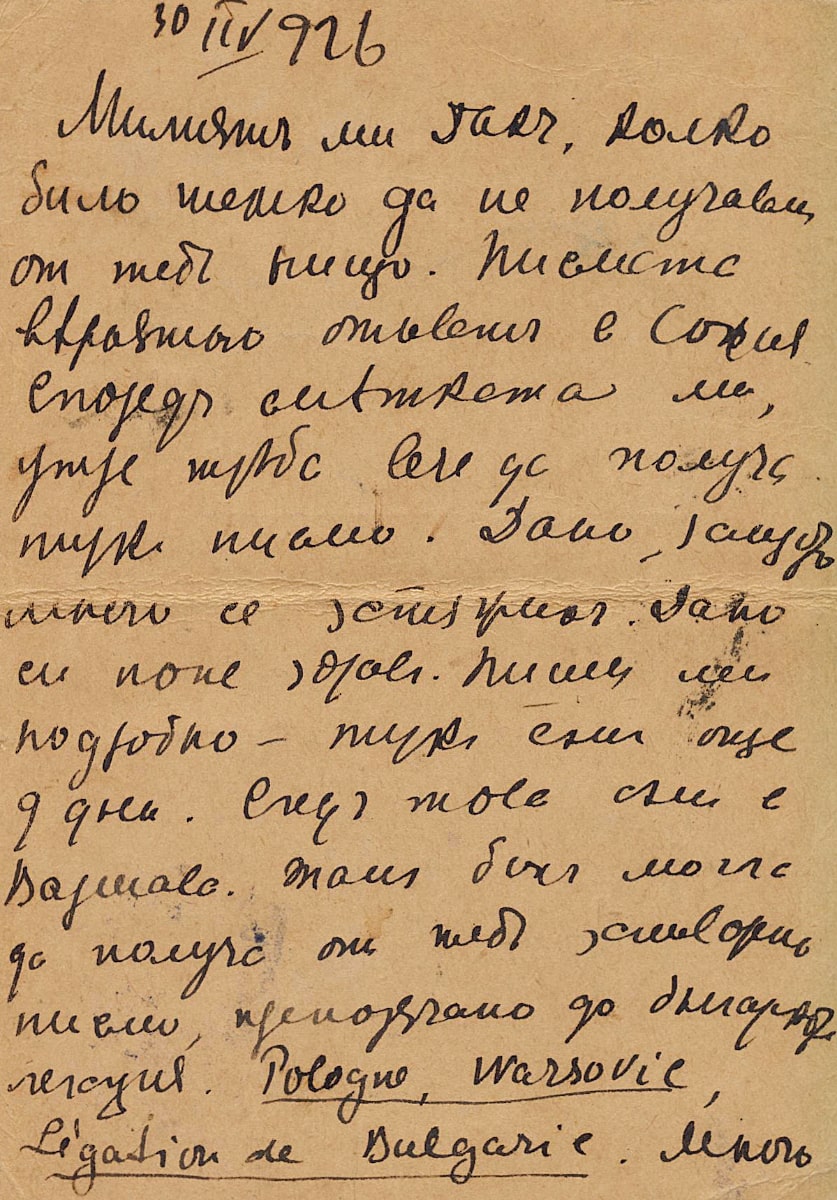 30 IIV 926
Милиятъ ми Данъ, колко
било тежко да не получаваш
от тебъ нищо. Писмата
вѣроятно отиватъ в София
Според смѣтката ми,
утре трѣба вече да получа
тукъ писмо. Дано,
много се . Дано
си поне здравъ. Пиши ми
подробно – тукъ съмъ още
9 дни. Следъ това съм в
Варшава. Тамъ бихъ могла
да получа от тебъ затворено
писмо, препоръчано до българската
легация. Pologne, Warsovie,
Légation de Bulgarie. Много